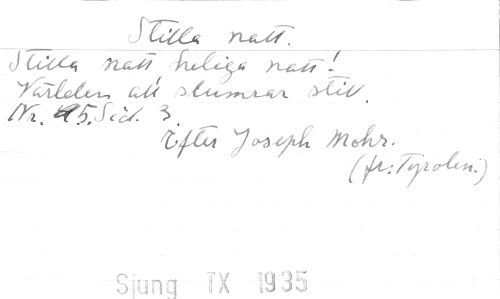 Stilla natt.
Stilla natt heliga natt!
Världen all slumrar still.
Nr. 95. Sid. 3.
Efter Joseph Mohr.
(fr: Tyrolen.)
Sjung TX 1935